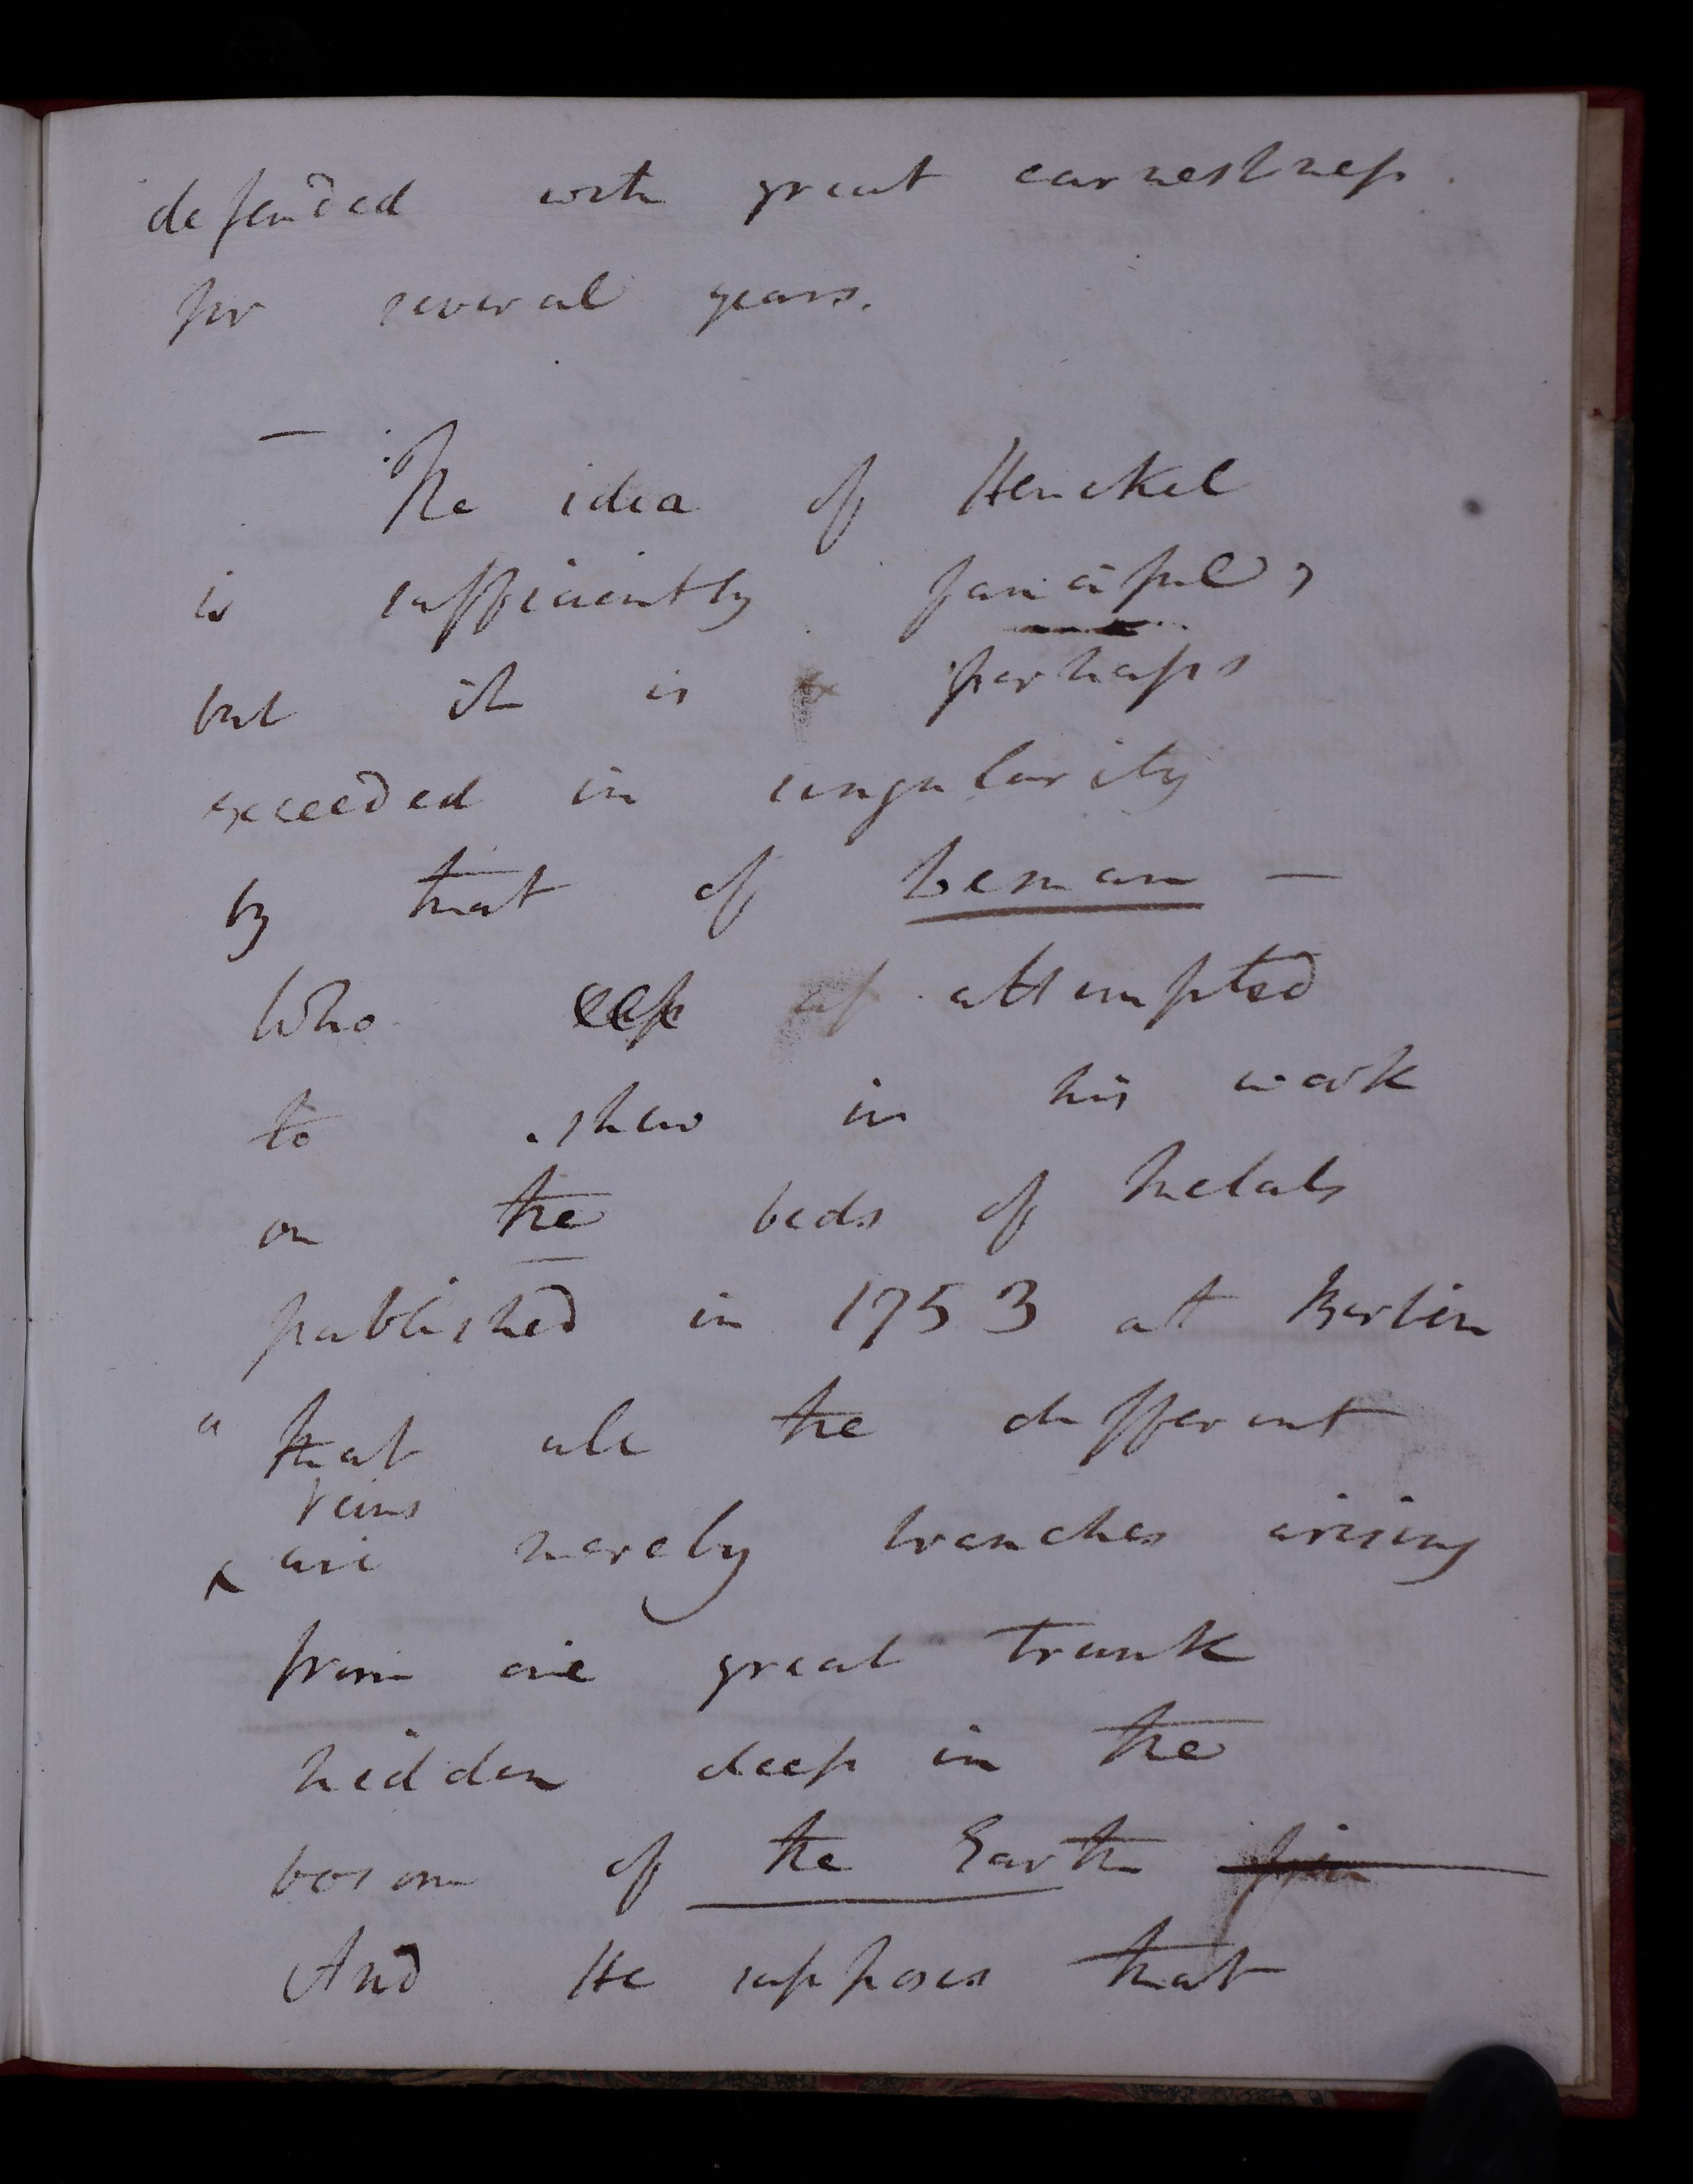 defended with great earnestness
for several years.
— The idea of Henckel
is sufficiently fanciful,
but it is perhaps
exceeded in singularity
by that of Leman —
Who attempted
to shew in his work
on the beds of Metals
published in 1753 at Berlin
" that all the different
veins
^ are merely branches arising
from one great trunk
hidden deep in the
bosom of the Earth
And He supposes that